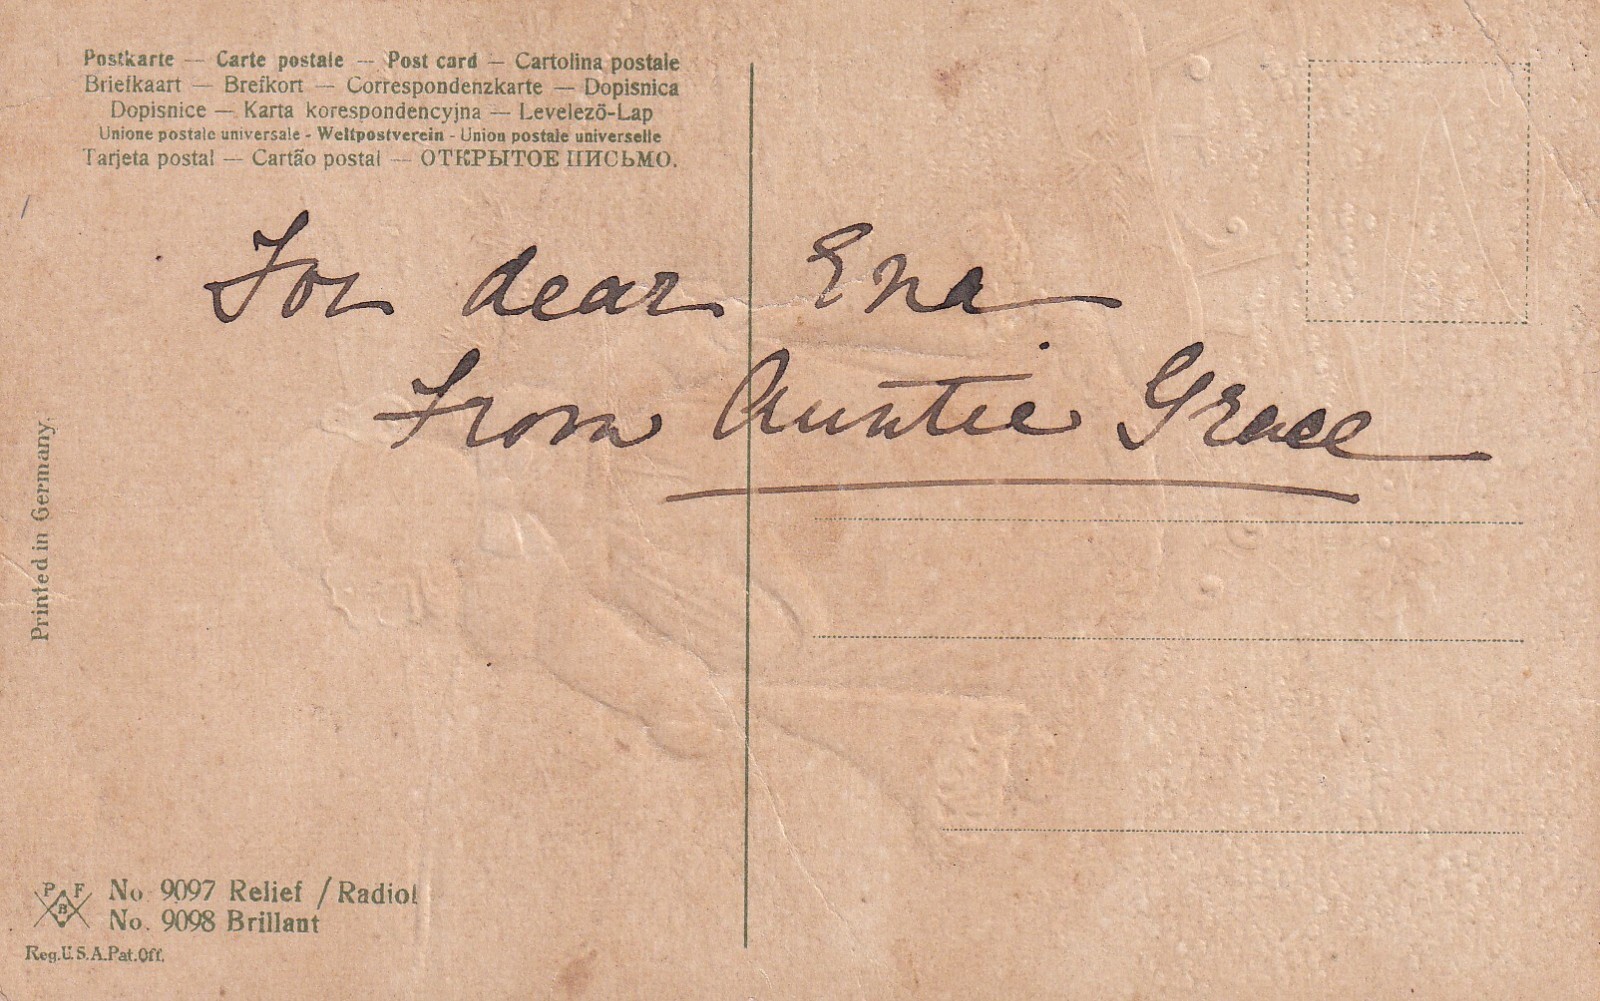 Postkarte — Carte postale — Post card — Cartolina postale
Briefkaart — Brefkort — Correspondenzkarte — Dopisnica
Dopisnice — Karta korespondencyjna — Levelezō-Lap
Unione postale universale - Weltpostverein - Union postale universelle
Tarjeta postal — Cartão postal — ОТКРЫТОЕ ПИСЬМО.
For dear Ena
From Auntie Grace
Printed in Germany.
P F B
No 9097 Relief / Radiol
No. 9098 Brillant
Reg. U.S.A. Pat. Off.